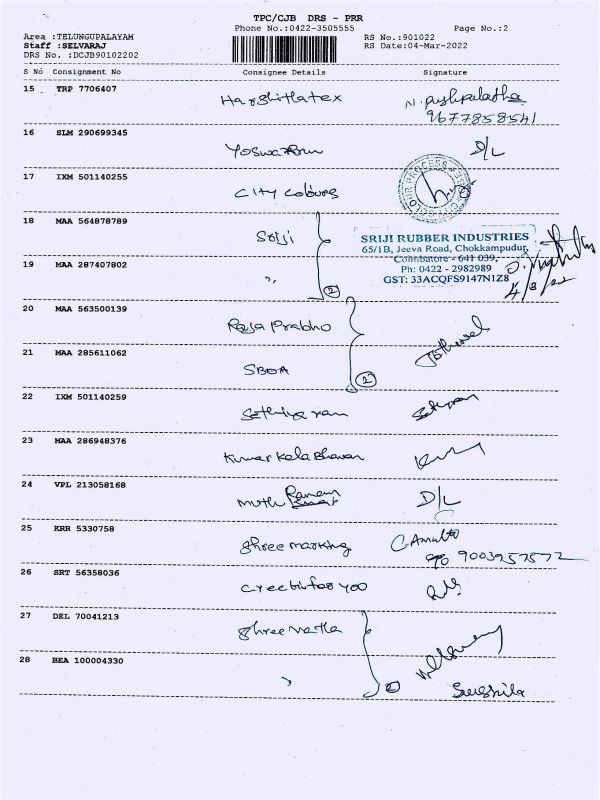 TPC/CJB DRS - PRR
Phone No.:0422-3505555 Page No.:2
Area :TELUNGUPALAYAM RS No.:901022
Staff :SELVARAJ RS Date:04-Mar-2022
DRS No. :DCJB90102202
S No Consignment No Consignee Details Signature
15 TRP 7706407
Harshitlatex N. pushpalatha
9677858541
16 SLM 290699345
D/L
17 IXM 501140255
City Colours
18 MAA 564878789
Sriji
SRIJI RUBBER INDUSTRIES
65/1B, Jeeva Road, Chokkampudur,
Coimbatore - 641 039,
Ph: 0422 - 2982989
GST: 33ACQFS9147N1Z8
4/3/22
19 MAA 287407802
" 2
20 MAA 563500139
Raja Prabho
21 MAA 285611062
SBOA 2
22 IXM 501140259
Sathiya ram
23 MAA 286948376
Kumar Kala Bhavan
24 VPL 213058168
Muth Raman D/L
25 KRR 5330758
Shree marking C. Amutha
9003957572
26 SRT 56358036
27 DEL 70041213
28 BEA 100004330
Sushila